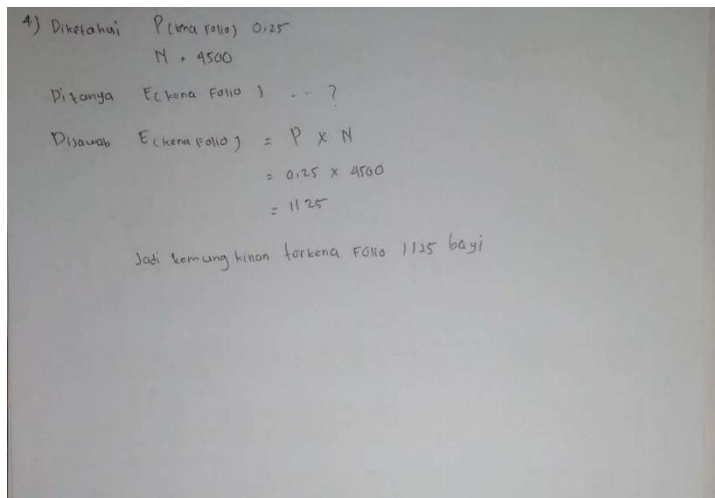 4) Diketahui P(kena Folio) 0,25
N = 4500
Ditanya E(kena Folio) ... ?
Dijawab E(kena Folio) = P x N
= 0,25 x 4500
= 1125
Jadi kemungkinan terkena Folio 1125 bayi